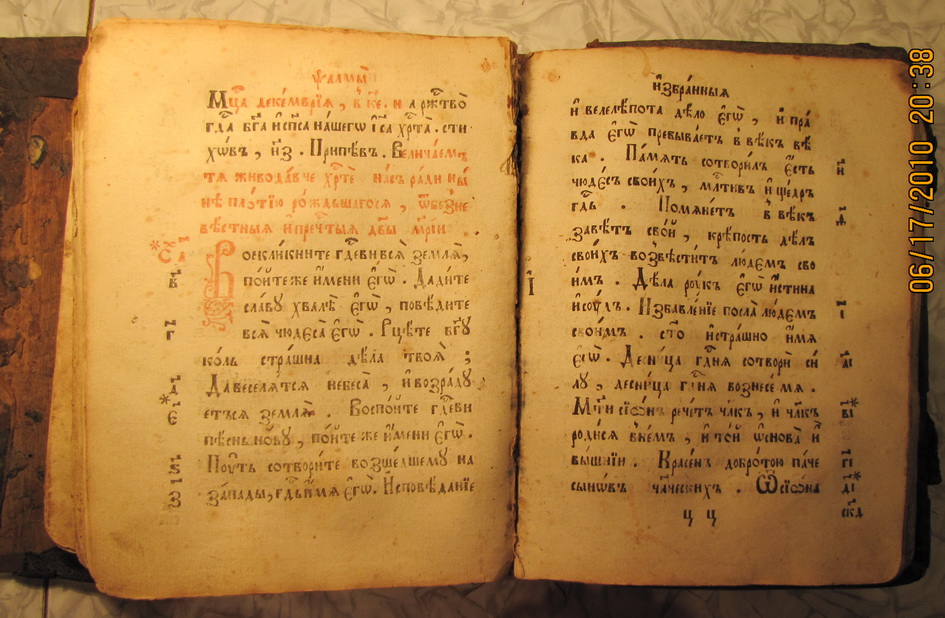 ѱалмы̀
Мц҃а декемврїа, в҃ ке҃. на рж҃тво̀
гд҃а бг҃а и҆ сп҃са на́шегѡ і҆с҃а хрт҃а̀. сти
хѡ́въ, и҆з̾. Припѣ́въ. Велича́емъ
тѧ̀ живода́вче хрт҃ѐ на́съ ра́ди ны́
нѣ пло́тїю ро́ждьшагосѧ, ѿ безне
вѣ́стныѧ и҆ пречт҃ыѧ дв҃ы мр҃і́и.
Воскли́кните гдⷭ҇еви всѧ̀ землѧ̀,
по́йте же и҆́мени є҆гѡ̀. Дади́те
сла́ву хвалѣ̀ є҆гѡ̀, повѣ́дите
всѧ̀ чюдеса̀ є҆гѡ̀. Рцѣ́те бг҃у
ко́ль стра́шна дѣла̀ твоѧ̀;
Да веселѧ́тсѧ небеса̀, и҆ возра́ду
етъсѧ землѧ̀. Воспо́йте гдⷭ҇еви
пѣ́снь но́ву, по́йте же и҆́мени є҆гѡ̀.
Пꙋ́ть сотвори́те возше́дшему на
за́пады, гдⷭ҇ь и҆́мѧ є҆гѡ̀. И҆сповѣ́данїе
в҃
г҃
д҃
є҃
ѕ҃
з҃
и҆збра́нныѧ
и҆ велелѣ́пота дѣ́ло є҆гѡ̀, и҆ пра́
вда є҆гѡ̀ превыва́етъ в̾ вѣ́къ вѣ́
ка. Па́мѧть сотвори́лъ є҆́сть
чюде́съ свои́хъ, млⷭ҇тивъ и҆ ще́дръ
гдⷭ҇ь. Помѧне́тъ в̾ вѣ́къ
завѣ́тъ сво́й, крѣ́пость дѣ́лъ
свои́хъ возвѣсти́тъ лю́демъ сво
и́мъ. Дѣла̀ рꙋ́къ є҆гѡ̀ и҆́стина
и҆ сꙋ́дъ. И҆збавле́нїе посла̀ лю́демъ
свои́мъ. ст҃о и҆ стра́шно и҆́мѧ
є҆гѡ̀. Десни́ца гдⷭ҇нѧ сотворѝ си́
лу, десни́ца гдⷭ҇нѧ вознесе́ мѧ.
Мт҃и сїѡ́нъ рече́тъ чл҃къ, и҆ чл҃къ
роди́сѧ в̾не́мъ, и҆ то́й ѡ҆снова̀ и҆̀
вы́шнїи. Красе́нъ добро́тою па́че
сынѡ́въ чл҃ческихъ. Ѿ сїѡ́на
и҃
ѳ҃
і҃
аі҃
ві҃
гі҃
ді҃
скд
цц